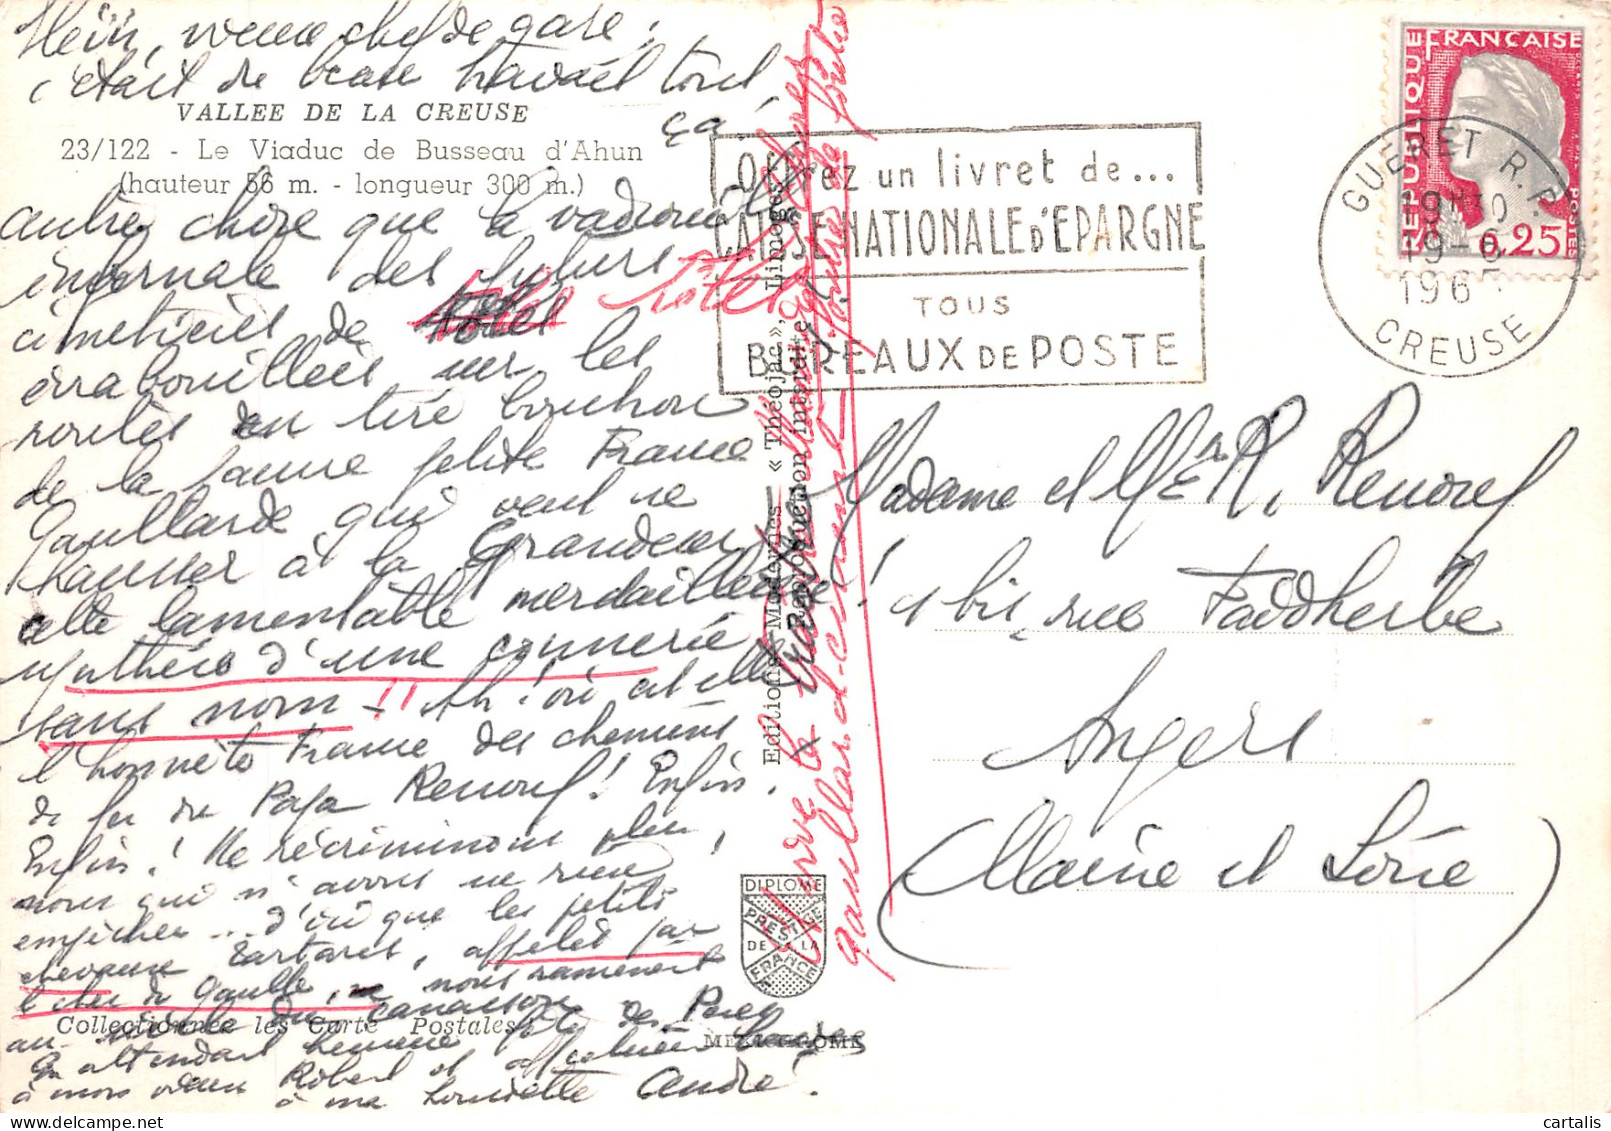 Hein, vieux chef de gare :
c'était de beau travail tout
ça,
VALLEE DE LA CREUSE
23/122 - Le Viaduc de Busseau d'Ahun
(hauteur 56 m. - longueur 300 m.)
autre chose que la
infernale des futurs
cimetières de tôles tôles
érabouillées sur les
routes en tire bouchon
de la pauvre petite France
Gaullarde qui veut se
hausser à la Grandeur
cette lamentable merdailleuse !
synthèse d'une connerie
sans nom !! Ah ! où est elle
l'honnête France des chemins
de fer du Papa Renouf ! Enfin.
Enfin ! Ne récriminons plus,
nous qui n'avons su rien
empêcher ... d'ici que les petits
chevaux tartares, appelés par
le cher de Gaulle, nous ramènent
au siècle du canasson
En attendant de Pâques
à mon vieux Robert et affectueux
à ma Louisette André.
Collectionnez les Carte Postales
Editions Modernes « Théojac », Limoges
Reproduction interdite
la
gaullarde
DIPLOME
PRESTIGE
DE LA
FRANCE
MEXICHROME
Offrez un livret de...
CAISSE NATIONALE D'EPARGNE
TOUS
BUREAUX DE POSTE
REPUBLIQUE FRANÇAISE
POSTES
0,25
GUERET R.P.
19H30
19-6
1965
CREUSE
Madame et Mr R. Renouf
1 bis, rue Faidherbe
Angers
(Maine et Loire)